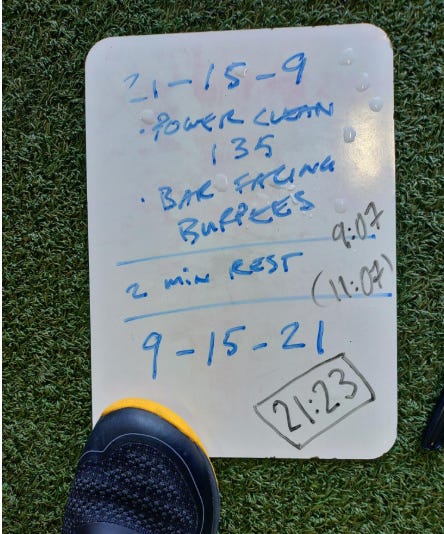 21-15-9
• POWER CLEAN
135
• BAR FACING
BURPEES
9:07
2 MIN REST
(11:07)
9-15-21
21:23